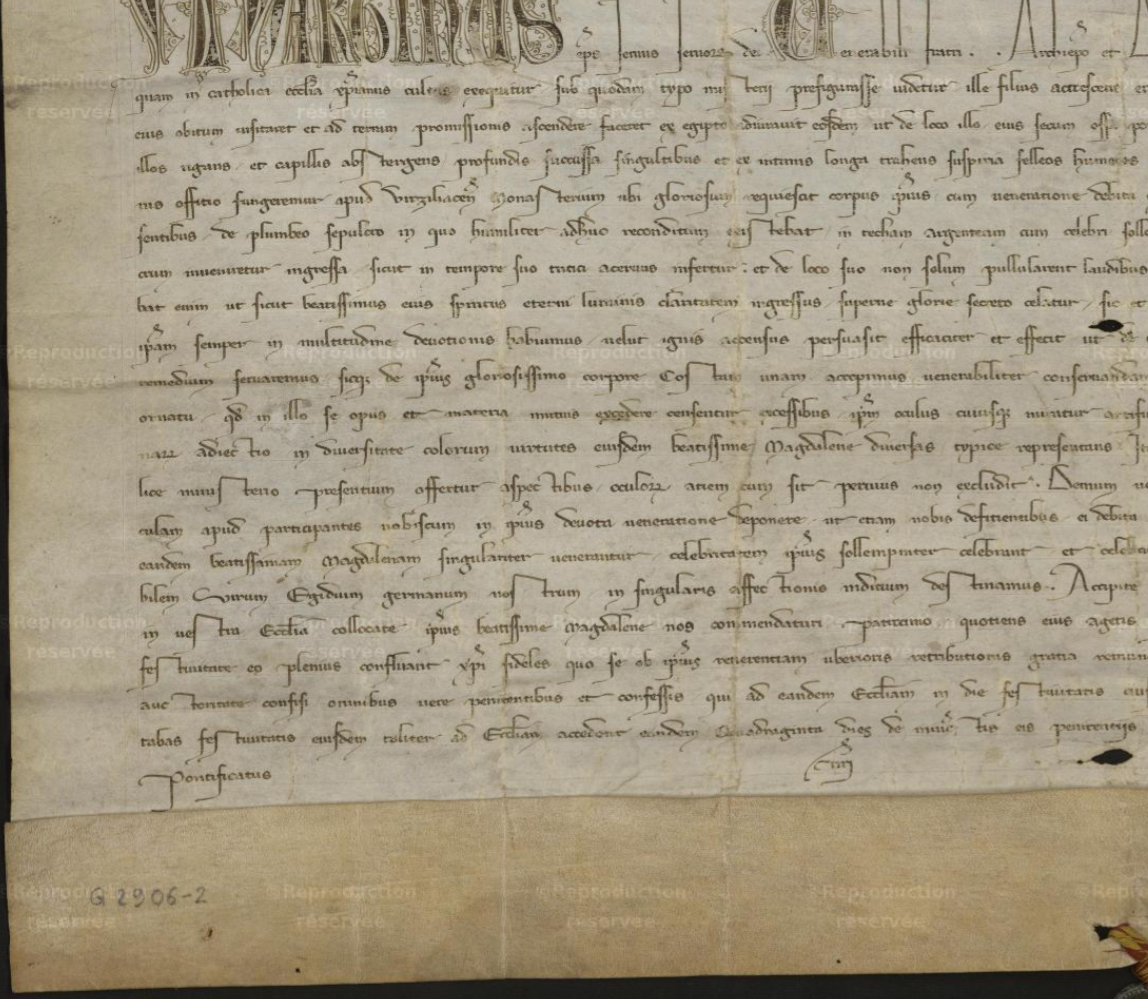 eps seruus seruorum dei Venerabili fratri . . Archiepo et
quam in catholica ecclia xpianus cultus exequitur sub quodam typo misterii prefigurasse uidetur ille filius accrescens et
eius obitum uisitaret et ad terram promissionis ascendere faceret ex egipto adiurauit eosdem ut de loco illo eius secum ossa
illos rigans et capillis abstergens profundis succussa singultibus et ex intimis longa trahens suspiria felleos humores
nis officio fungeremur apud Virziliacen Monasterium ubi gloriosum requiescit corpus ipius cum ueneratione debita
sentibus de plumbeo sepulcro in quo humiliter adhuc reconditum existebat in techam argenteam cum celebri
crum inueniretur ingressa sicut in tempore suo tritici aceruus infertur et de loco suo non solum pullularent laudibus
bat enim ut sicut beatissimus eius spiritus eterni luminis claritatem ingressus superne glorie secreto celatur sic et
ipam semper in multitudine deuotionis habuimus uelut ignis accensus persuasit efficaciter et effecit ut de
remedium seruaremus sicq de ipius gloriosissimo corpore Costam unam accepimus uenerabiliter conseruandam
ornatu qd in illo se opus et materia mutuis excedere censentur excessibus ipm oculus cuiusq miratur
adiectio in diuersitate colorum uirtutes eiusdem beatissime Magdalene diuersas typice representans
lice ministerio presentium offertur aspectibus oculorz aciem cum sit peruius non excludit . Demum
culam apud participantes nobiscum in ipius deuota ueneratione deponere ut etiam nobis deficientibus ei debita
eandem beatissimam Magdalenam singulariter uenerantur celebritatem ipius sollempniter celebrant et
bilem Virum Egidium germanum nostrum in singularis affectionis indicium destinamus . Accipite
in uestra Ecclia collocate ipius beatissime Magdalene nos commendaturi patrocinio quotiens eius agetis
festiuitate eo plenius confluant xpi fideles quo se ob ipius reuerentiam uberioris retributionis gratia
auctoritate confisi omnibus uere penitentibus et confessis qui ad eandem Eccliam in die festiuitatis
tabas festiuitatis eiusdem taliter ad Eccliam accedent eandem Quadraginta dies de iniunctis eis penitentiis
Pontificatus
G 2906-2
©Reproduction réservée